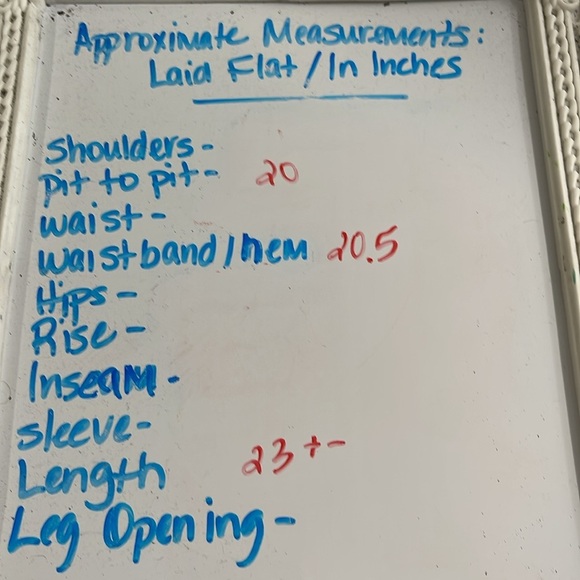 Approximate Measurements:
Laid Flat / In Inches
Shoulders -
pit to pit - 20
waist -
waistband / hem 20.5
Hips -
Rise -
Inseam -
sleeve -
Length 23 + -
Leg Opening -